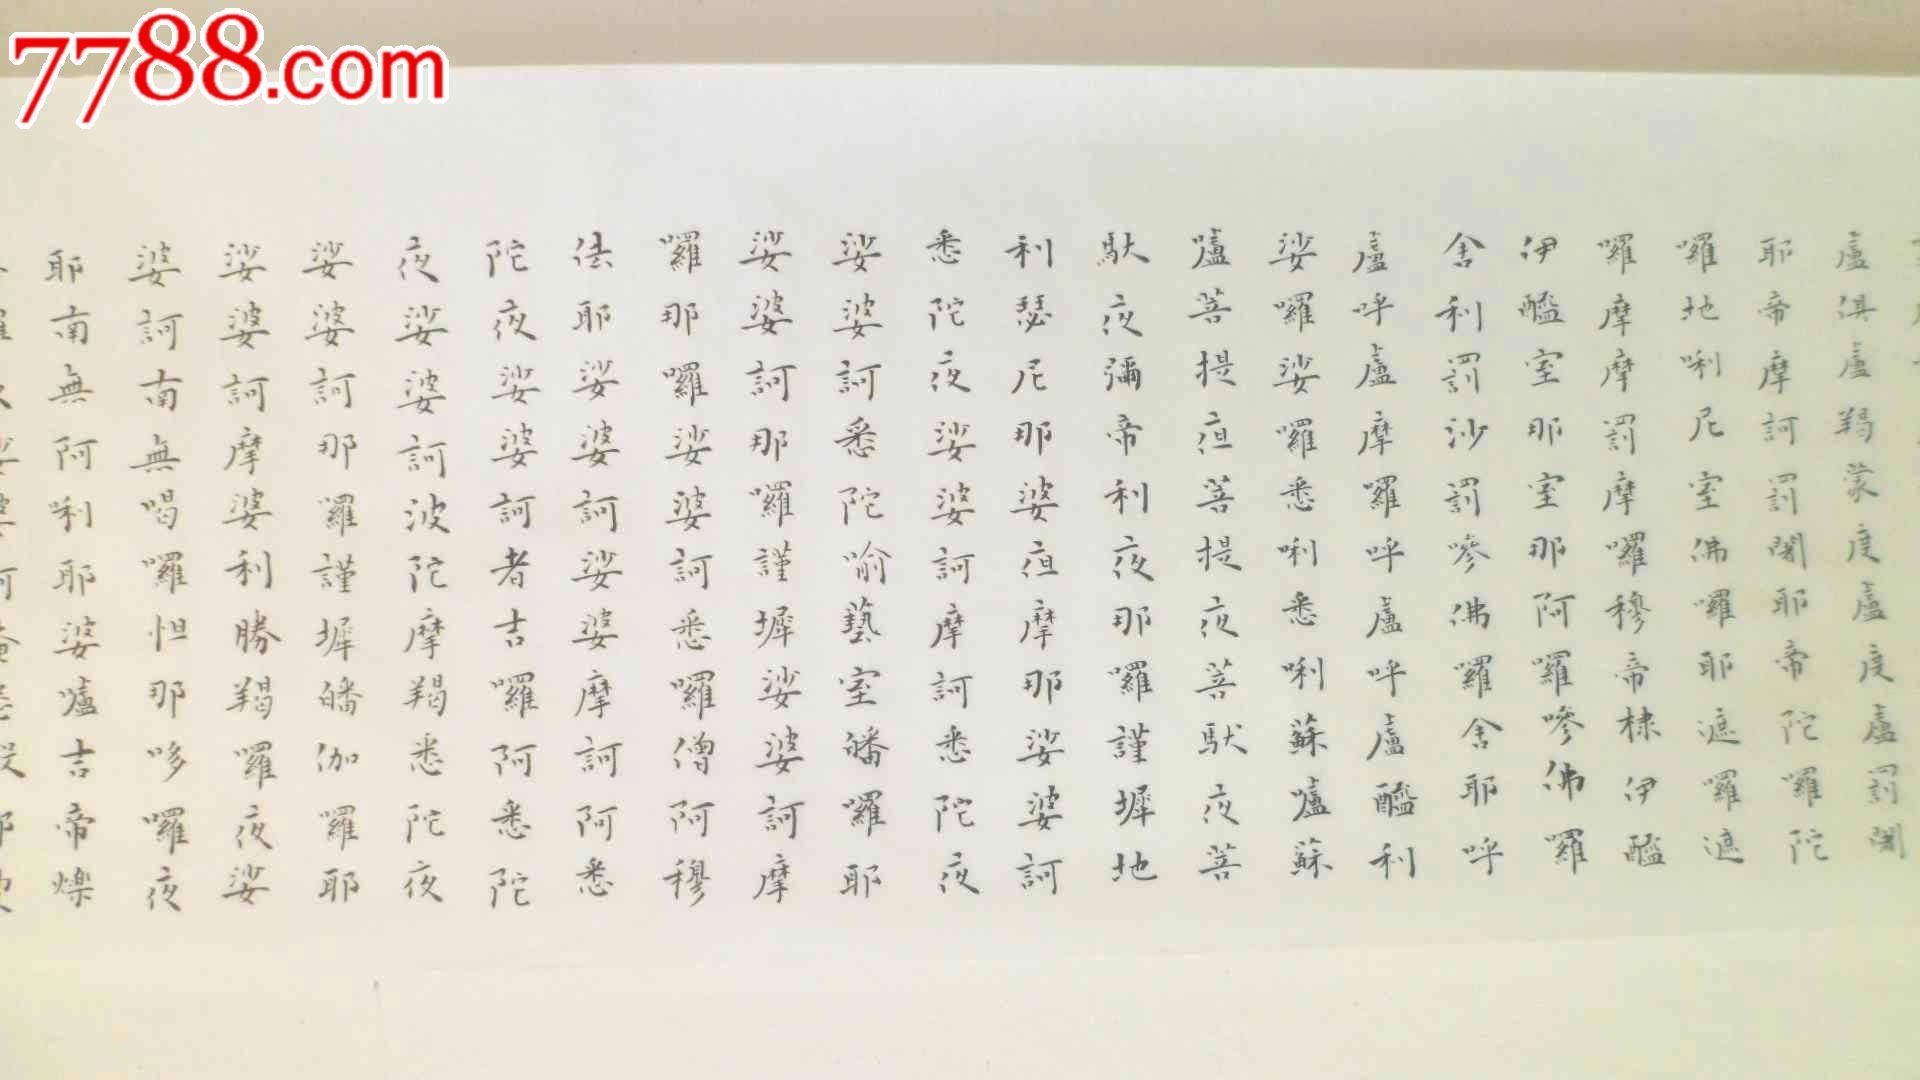 盧俱盧羯蒙度盧度盧罰闍
耶帝摩訶罰闍耶帝陀羅陀
囉地唎尼室佛囉耶遮囉遮
囉摩摩罰摩囉穆帝棣伊醯
伊醯室那室那阿囉嘇佛羅
舍利罰沙罰嘇佛囉舍耶呼
盧呼盧摩囉呼盧呼盧醯利
娑囉娑囉悉唎悉唎蘇嚧蘇
嚧菩提亱菩提夜菩馱夜菩
馱夜彌帝利夜那囉謹墀地
利瑟尼那婆亱摩那娑婆訶
悉陀夜娑婆訶摩訶悉陀夜
娑婆訶悉陀喻藝室皤囉耶
娑婆訶那囉謹墀娑婆訶摩
囉那囉娑婆訶悉囉僧阿穆
佉耶娑婆訶娑婆摩訶阿悉
陀夜娑婆訶者吉囉阿悉陀
夜娑婆訶波陀摩羯悉陀夜
娑婆訶那囉謹墀皤伽囉耶
娑婆訶摩婆利勝羯囉夜娑
婆訶南無喝囉怛那哆囉夜
耶南無阿唎耶婆嚧吉帝爍
7788.com